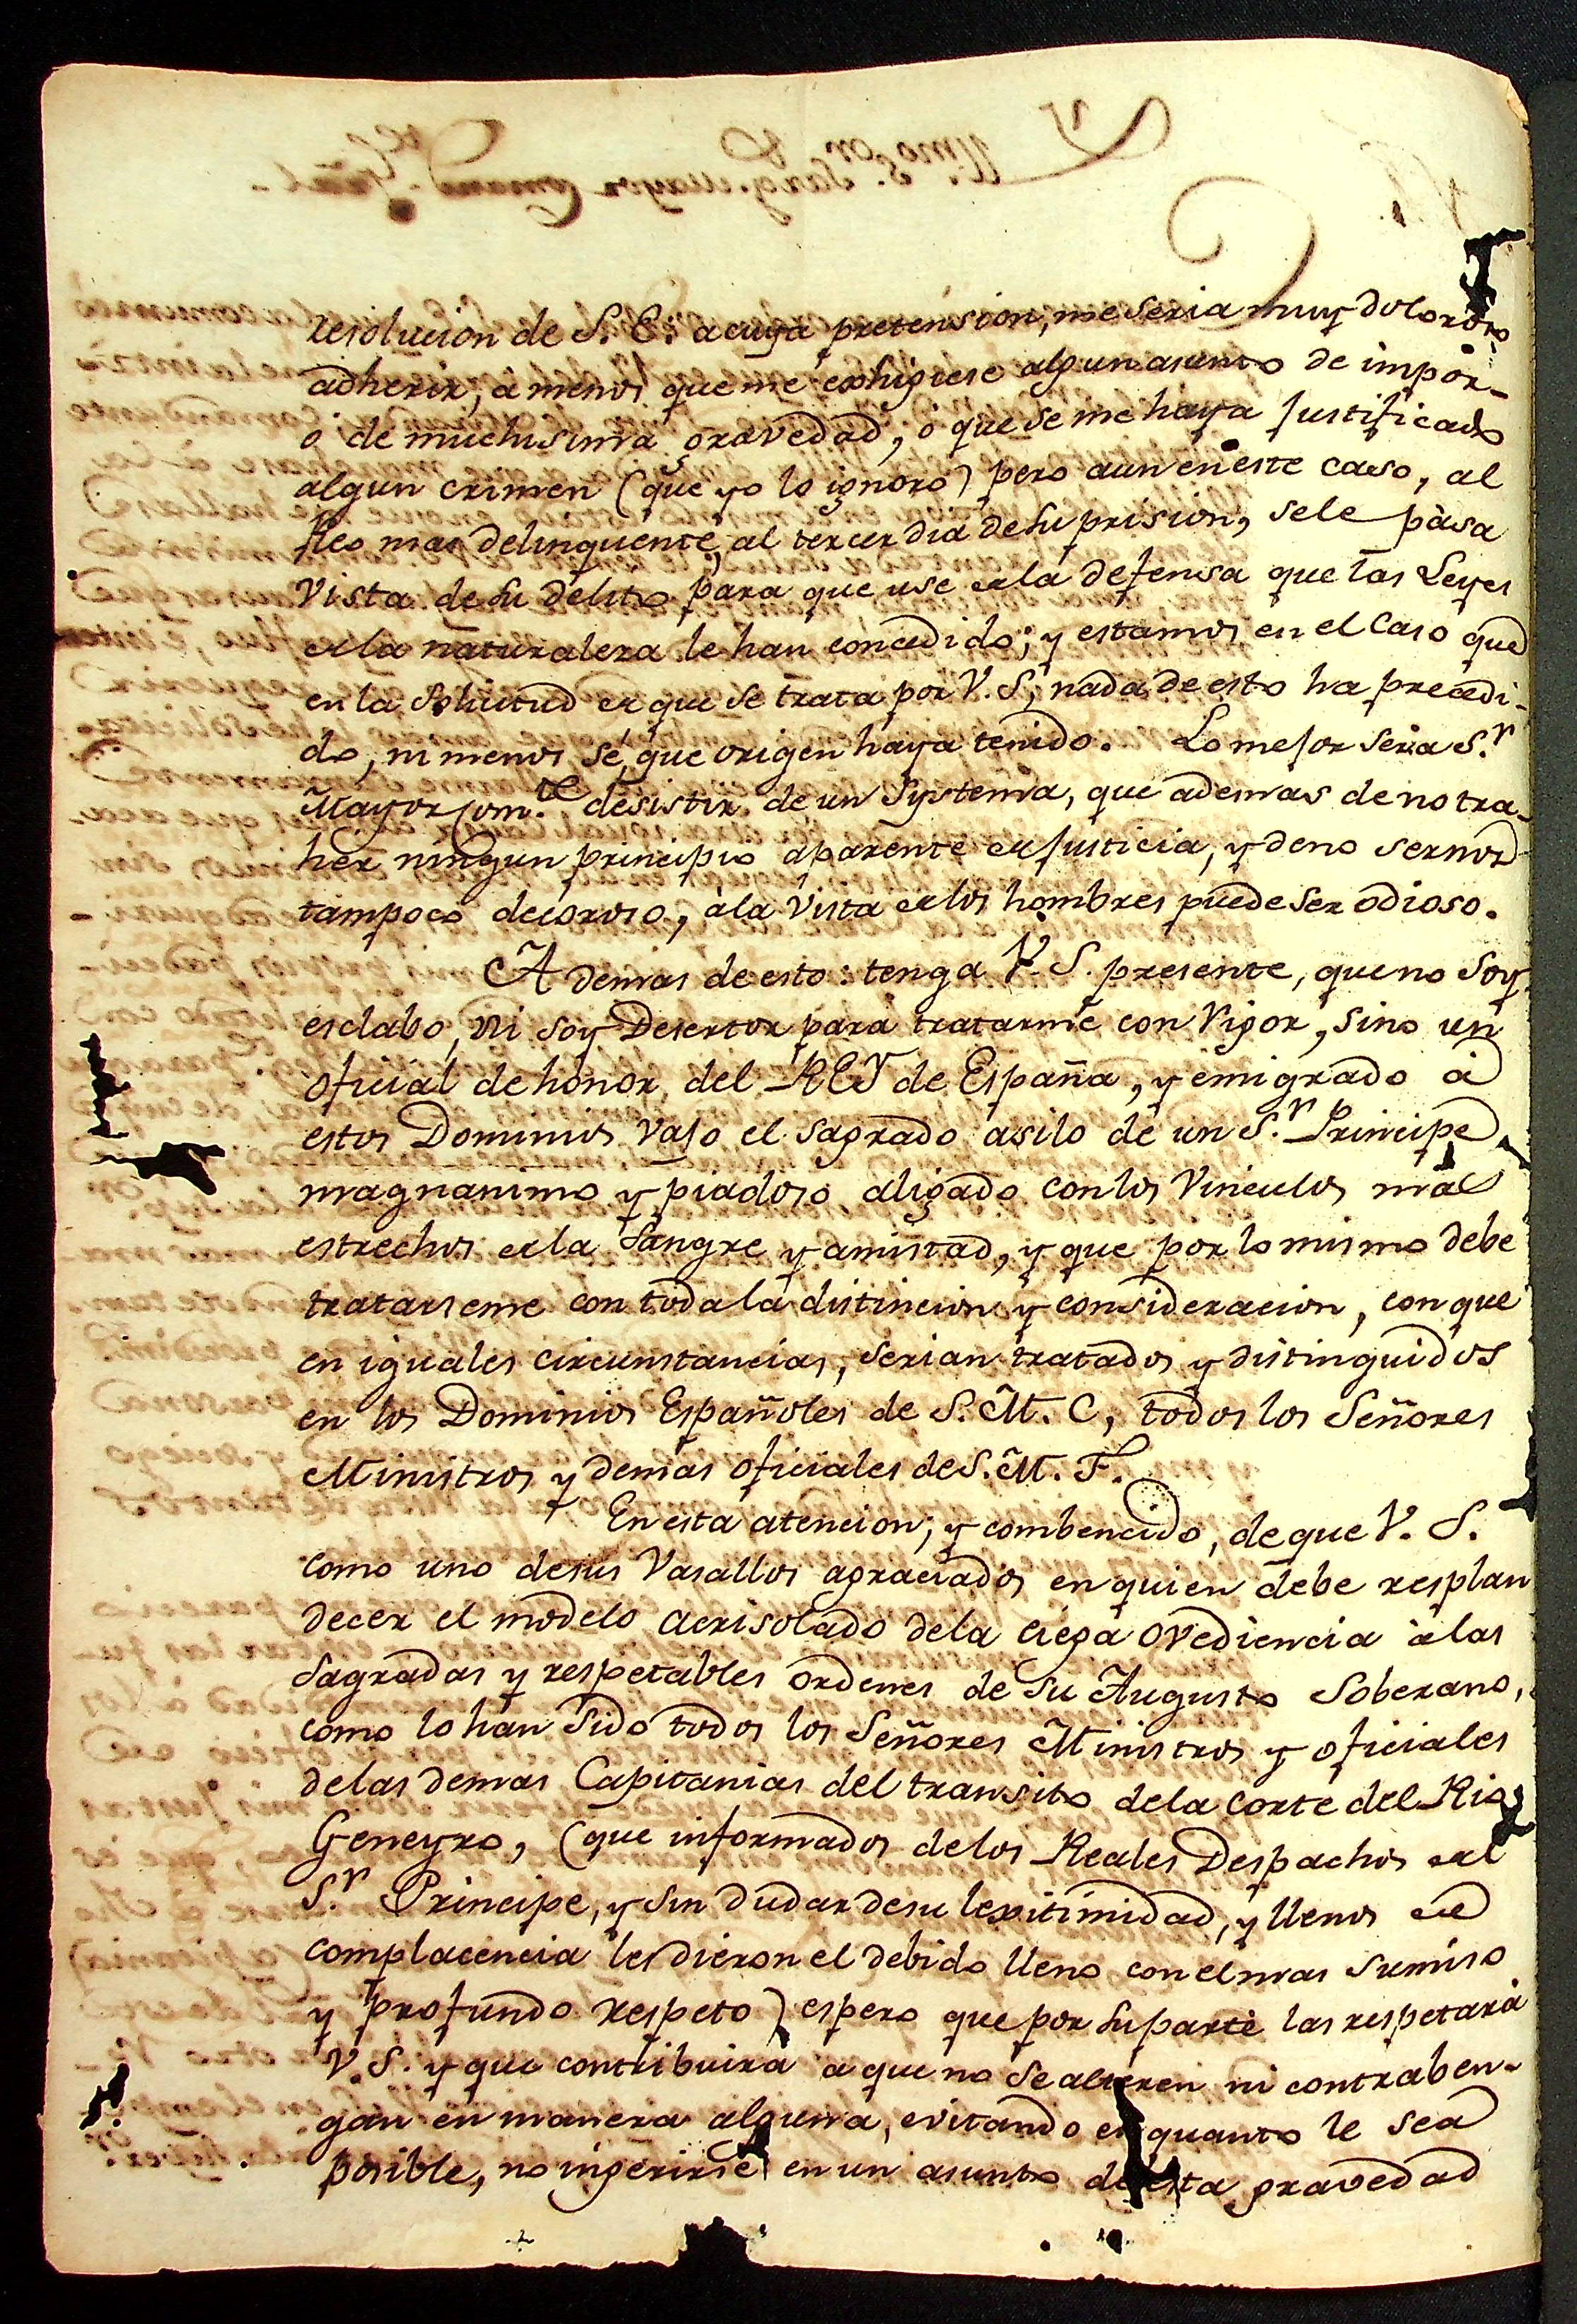 resolucion de S. E. a cuya pretension, me seria muy doloroso
adherir, à menos que me exhigiese algun asunto de impor-
ò de muchisima gravedad, ò que se me haya justificado
algun crimen (que yo lo ignoro) pero aun en este caso, al
Reo mas delinquente, al tercer dia de su prision, se le pàsa
Vista de su delito para que use de la defensa que las Leyes
de la naturaleza le han concedido; y estamos en el caso que
en la solicitud de que se trata por V. S, nada de esto ha precedi-
do, ni menos sé, que origen haya tenido. Lo mejor seria S.r
Mayor Com.te desistir de un Systema, que ademas de no tra-
her ningun principio aparente de justicia, y de no sernos
tampoco decoroso, àla Vista de los hombres puede ser odioso.
Ademas de esto: tenga V. S. presente, que no soy
esclabo, ni soy Desertor para tratarme con Vigor, sino un
oficial de honor del REY de España, y emigrado à
estos Dominios vajo el sagrado asilo de un S.r Principe
magnanimo y piadoso aligado con los Vinculos mas
estrechos de la Sangre y amistad, y que por lo mismo debe
tratarseme con toda la distincion y consideracion, con que
en iguales circunstancias, serian tratados y distinguidos
en los Dominios Españoles de S. M. C, todos los Señores
Ministros y demas oficiales de S. M. F.
En esta atencion; y combencido, de que V. S.
como uno de sus Vasallos agraciados en quien debe resplan
decer el modelo acrisolado dela ciega ovediencia àlas
Sagradas y respetables ordenes de su Augusto Soberano,
como lo han sido todos los Señores Ministros y oficiales
delas demas Capitanias del transito dela corte del Rio
Geneyro, (que informados delos Reales Despachos del
S.r Principe, y sin dudar desu lexitimidad, y llenos de
complacencia les dieron el debido lleno con el mas sumiso
y profundo respeto) espero que por su parte las respetarà
V. S. y que contribuirà a que no se alteren ni contraben-
gan en manera alguna, evitando en quanto le sea
posible, no ingerirse en un asunto de esta gravedad